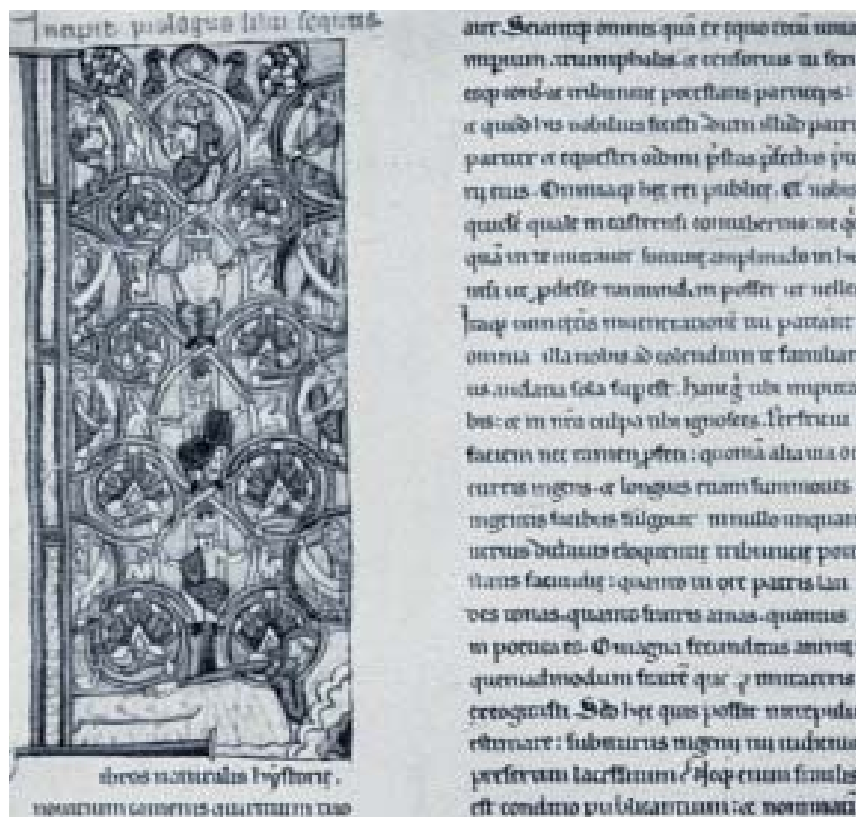 Incipit prologus libri sequentis
ibros naturalis hystorie.
nouitium camenis quiritium tuo
aur. Sciantq omnes quā ex equo tecū uiua
imperium. triumphalis et censorius tu
esq consul et tribunicie potestatis particeps:
et quod his nobilius fecisti dum illud patri
pariter et equestri ordini prestas prefectus
eius. Omniaq hec rei publice. Et nobis
quidē qualis in castrensi contubernio: nec
quā in te mutauit fortune amplitudo in
nisi ut prodesse tantundem posses ut uelles
Itaq cum ceteris in ueneratione tui pateant
omnia illa nobis ad colendum te familiari
us. audatia sola supest. hanc igit tibi imputa
bis: et in nra culpa tibi ignosces. Perfricui
faciem nec tamen profeci: quoniā alia uia oc
curris ingens. et longius etiam summoues
ingenii facibus fulgurat in nullo unquam
uerius dictatis eloquentie tribunicie potes
tatis facundie: quanto tu ore patris lau
des tonas. quanto fratris amas. quantus
in poetica es. O magna fecunditas animi
quemadmodum fratrē quoq imitareris
excogitasti. Sed hec quis posset intrepidus
estimare: subiturus ingenii tui iudicium
presertim lacessitum? Neq enim similis
est conditio publicantium: et nominati